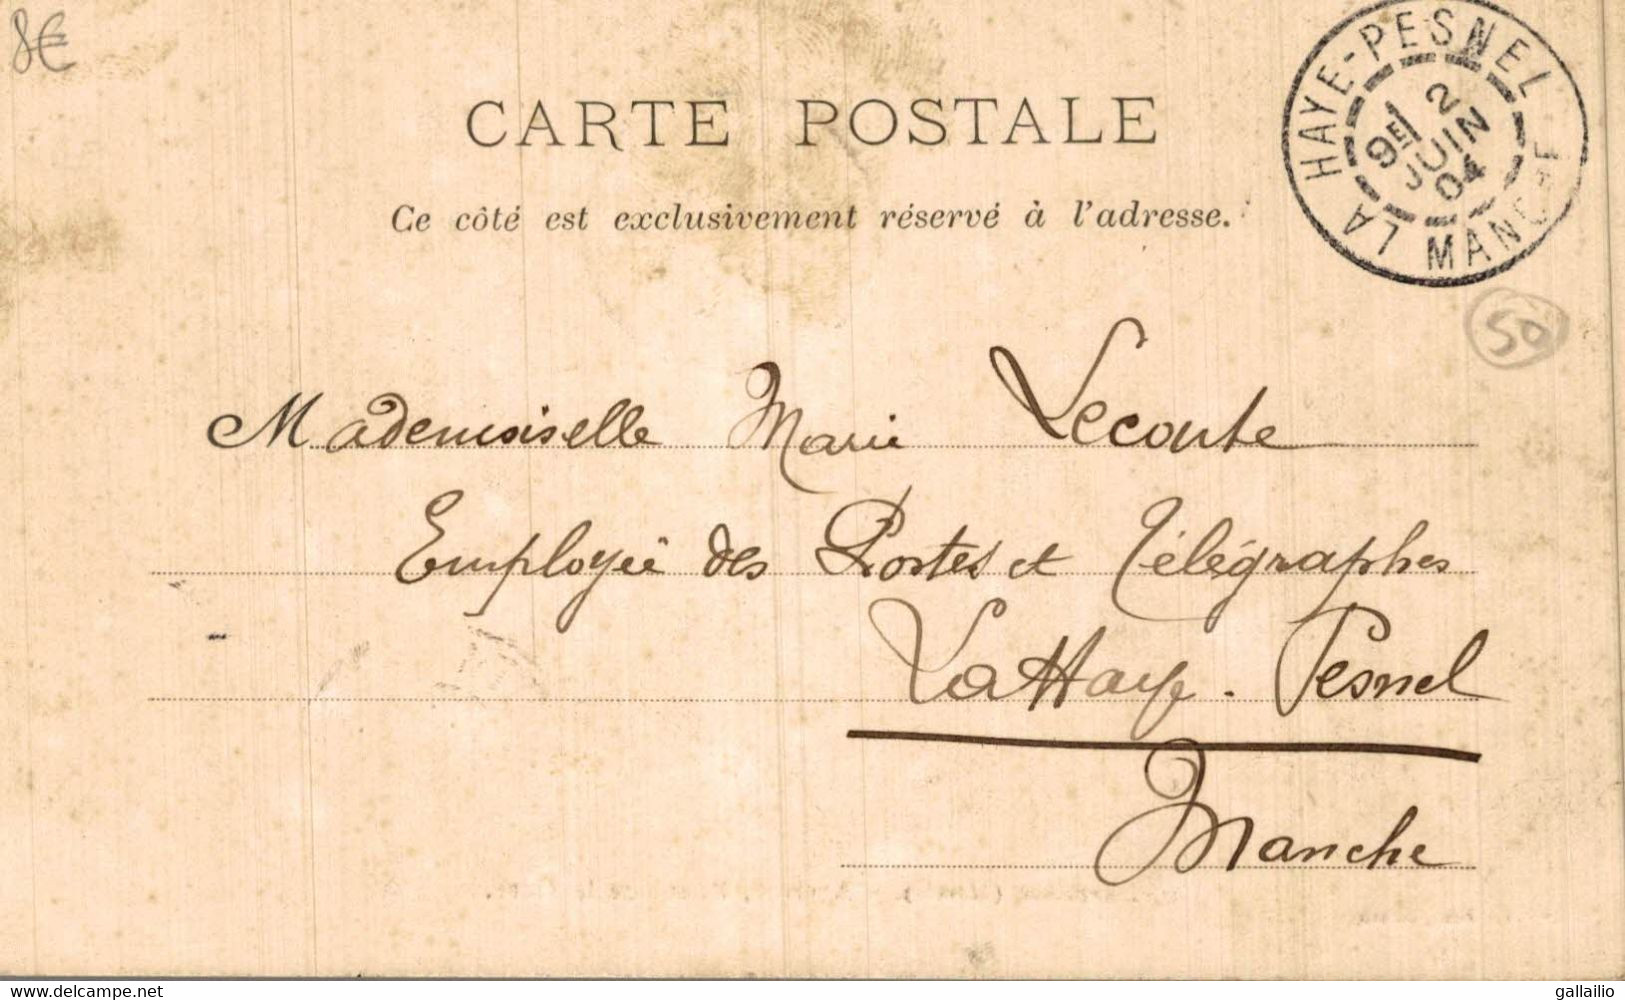 8€
CARTE POSTALE
Ce côté est exclusivement réservé à l'adresse.
LA HAYE-PESNEL
9E 2
JUIN
04
MANCHE
50
Mademoiselle Marie Leconte
Employée des Postes et Télégraphes
La Haye-Pesnel
Manche
www.delcampe.net
gallailio